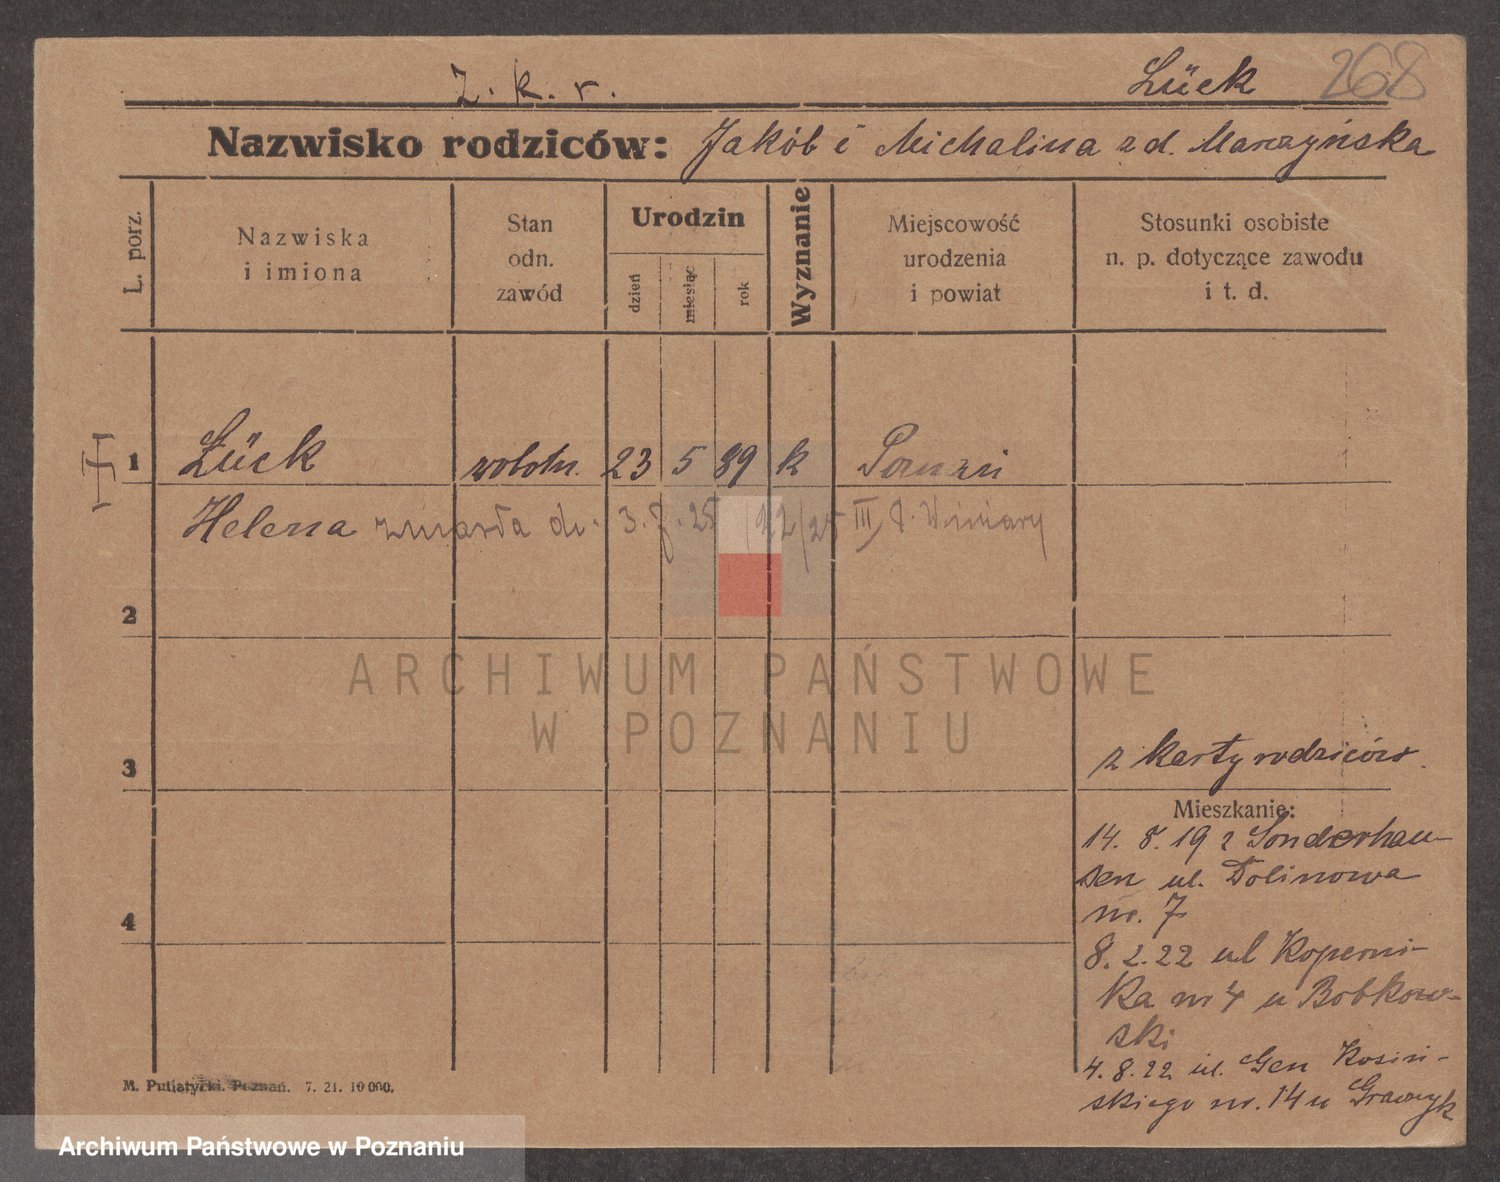 z. k. r.
Lück 268
Nazwisko rodziców: Jakób i Michalina z d. Marczyńska
L. porz.
Nazwiska
i imiona
Stan
odn.
zawód
Urodzin
dzień
miesiąc
rok
Wyznanie
Miejscowość
urodzenia
i powiat
Stosunki osobiste
n. p. dotyczące zawodu
i t. d.
1 Lück robotn. 23 5 89 k Poznań
Helena zmarła dn. 3. 7. 25 /22/25 III, P. Winiary
2
ARCHIWUM PAŃSTWOWE
W POZNANIU
3
z karty rodziców.
Mieszkanie:
14. 8. 19 z Sonderhau-
sen ul. Dolinowa
nr. 7
4
8. 2. 22 ul Koperni-
ka nr 4 u Bobkow-
ski
4. 8. 22 ul. Gen Kosiń-
skiego nr. 14 u Grawczyk
M. Putiatycki. Poznań. 7. 21. 10 000.
Archiwum Państwowe w Poznaniu